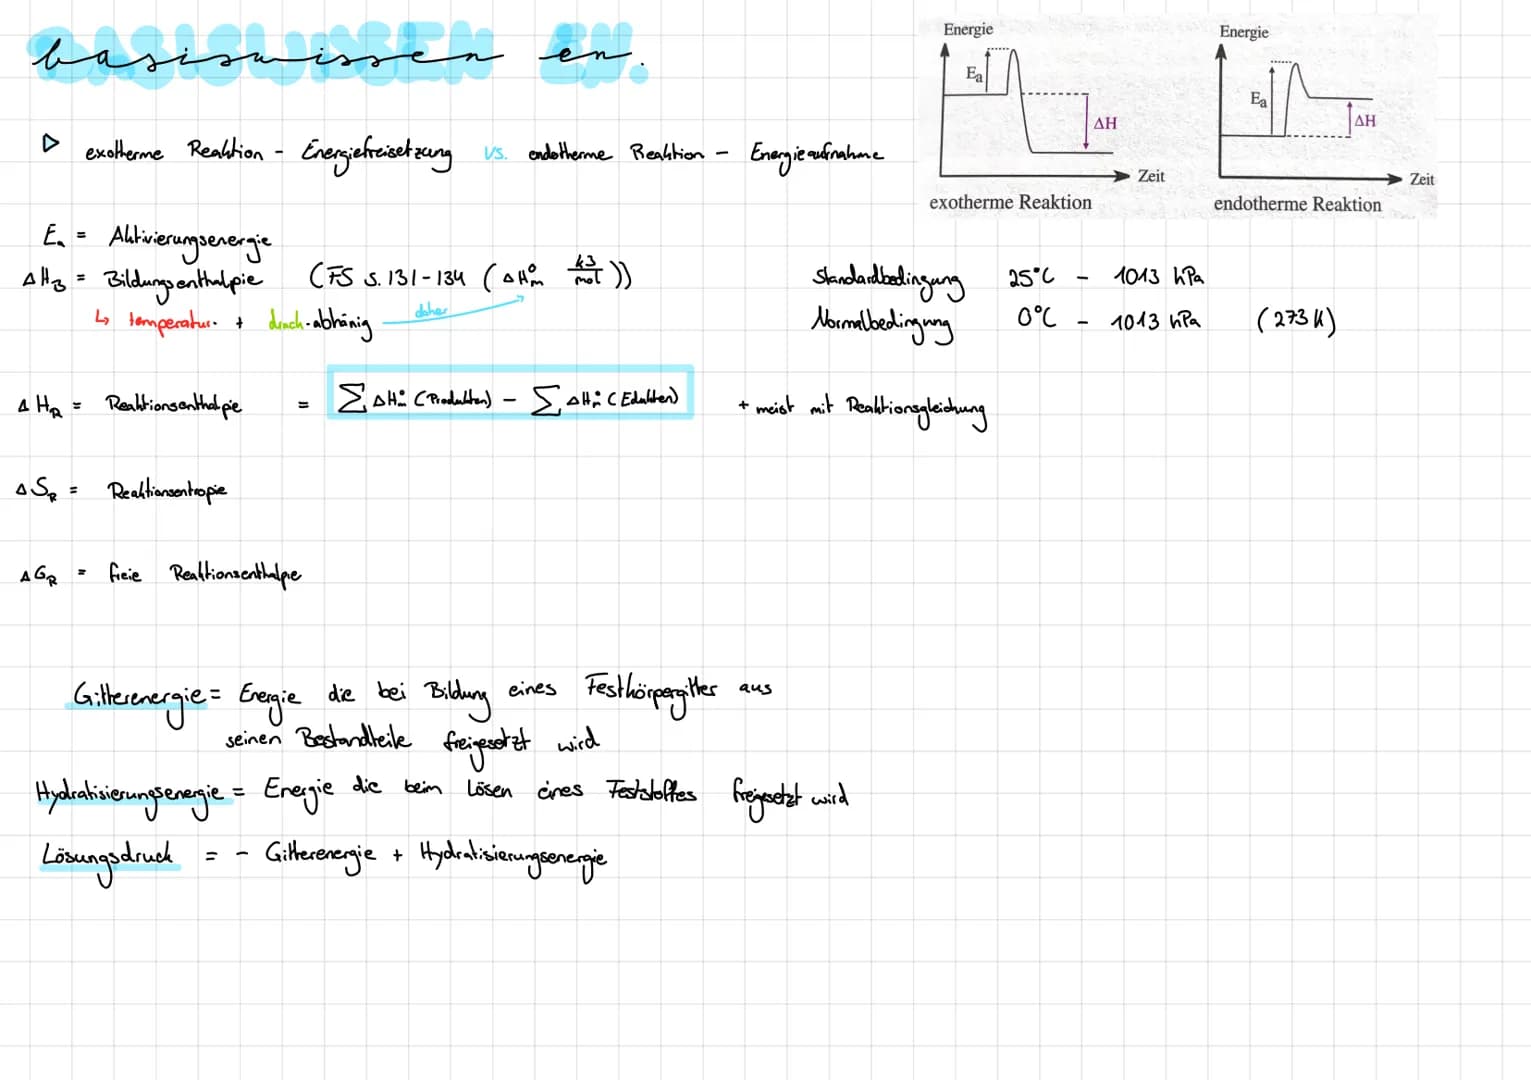 BASISWISSEN EN.
basiswissen en.
Energie
Ea
ΔH
Zeit
exotherme Reaktion
Energie
Ea
ΔH
Zeit
endotherme Reaktion
▷ exotherme Reaktion - Energiefreisetzung vs. endotherme Reaktion - Energieaufnahme
Ea = Aktivierungsenergie
ΔHB = Bildungsenthalpie (FS S. 131-134 (ΔH°m kJ/mol))
↳ temperatur- + druck-abhänig daher
Standardbedingung 25°C - 1013 hPa
Normalbedingung 0°C - 1013 hPa (273 K)
ΔHR = Reaktionsenthalpie = ∑ ΔH°m (Produkten) - ∑ ΔH°m (Edukten) + meist mit Reaktionsgleichung
ΔSR = Reaktionsentropie
ΔGR = freie Reaktionsenthalpie
Gitterenergie = Energie die bei Bildung eines Festkörpergitter aus
seinen Bestandteile freigesetzt wird
Hydratisierungsenergie = Energie die beim Lösen eines Feststoffes freigesetzt wird
Lösungsdruck = - Gitterenergie + Hydratisierungsenergie